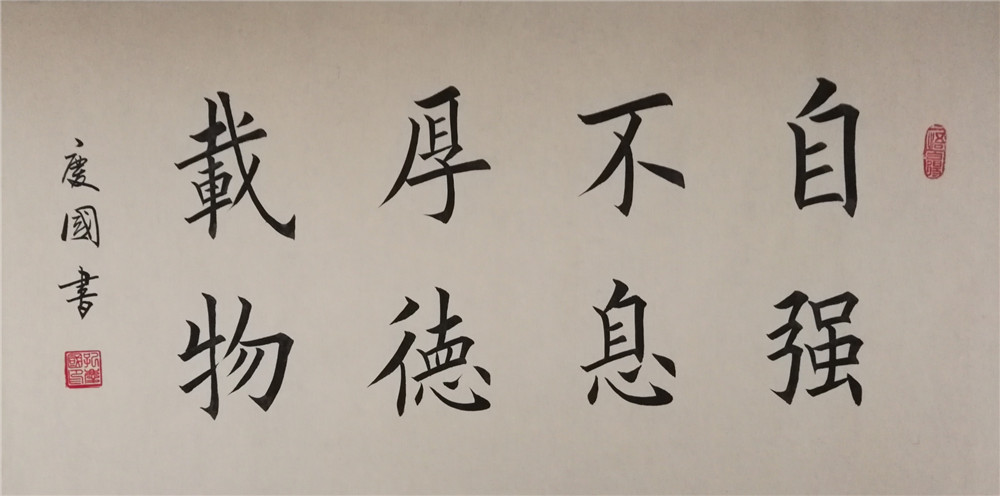 自强
不息
厚德
載物
慶國書